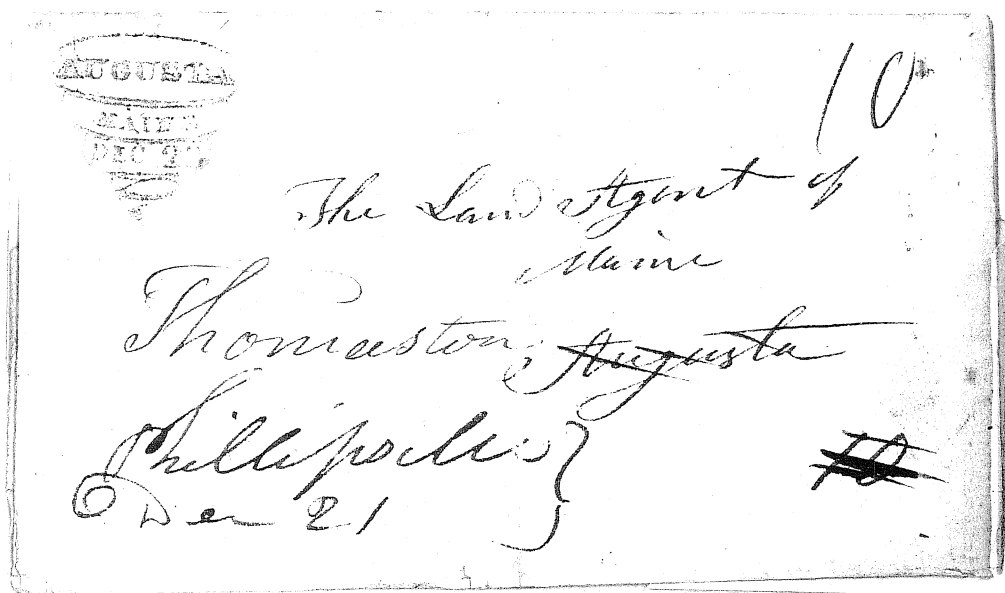 AUGUSTA
MAINE
DEC
10
The Land Agent of
Maine
Thomaston Augusta
Phillips
Dec 21
10